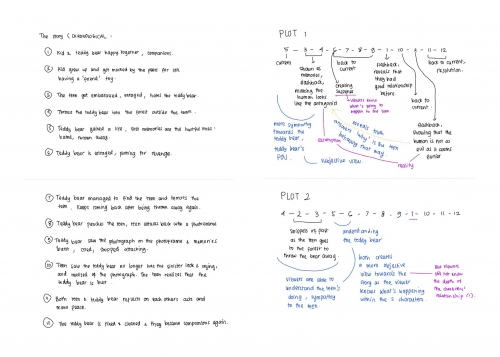 The story (CHRONOLOGICAL) :
① Kid & Teddy bear happy together, companions.
② Kid grew up and got mocked by the peers for still having a 'friend' toy.
③ The teen got embarrassed, enraged, hated the teddy bear.
④ Throws the teddy bear into the forest outside the town.
⑤ Teddy bear gained a life, but memories are the hurtful ones: hated, thrown away.
⑥ Teddy bear is enraged, for revenge.
⑦ Teddy bear managed to find the teen and torments the teen, keeps coming back after being thrown away again.
⑧ Teddy bear the teen, teen attacks back with a photoframe
⑨ Teddy bear saw the photograph on the photoframe & memories cried, stopped attacking.
⑩ Teen saw the teddy bear no longer has the sinister look & crying, and noticed of the photograph. The teen realises that the teddy bear is hurt.
⑪ Both teen & teddy bear reflects on each others acts and made peace.
The teddy bear is fixed & cleaned & they become companions again.
PLOT 1
5 - 3 - 4 - 6 - 7 - 8 - 9 - 1 - 10 - 2 - 11 - 12
current
shown as memories, flashback, making the human looks like the antagonist
back to current
creating suspense
viewers know what's going to happen to the teen
flashback, reveals that they had good relationship before.
back to current
flashback, showing that the human is not as evil as it seemed earlier
back to current, resolution.
more sympathy towards the teddy bear, teddy bear's POV.
assumption
reveals true answers 'why' is the teen behaving that way
reality
subjective view
PLOT 2
4 - 2 - 3 - 5 - 6 - 7 - 8 - 9 - 1 - 10 - 11 - 12
snippets of past as the teen goes to the forest to throw the bear away.
understanding the teddy bear
viewers are able to understand the teen's doing, sympathy to the teen.
both creates a more objective view towards the story as the viewer knows what's happening within the 2 characters.
but viewers did not know the depth of the characters' relationship (1).